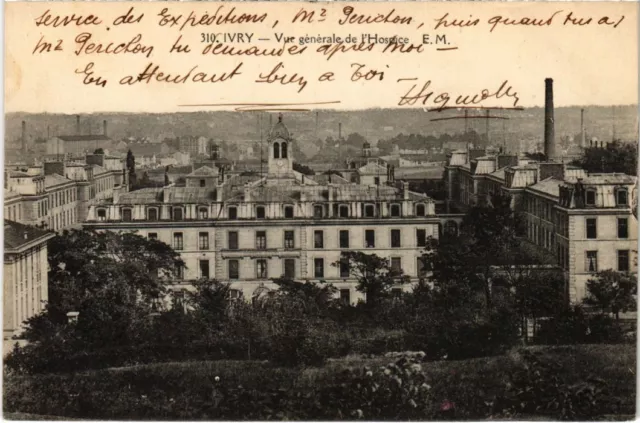 service des Expéditions, Mr Perichon, puis quand tu as
310. IVRY — Vue générale de l'Hospice E. M.
Mr Perichon tu demandes après moi —
En attendant bien à Toi —